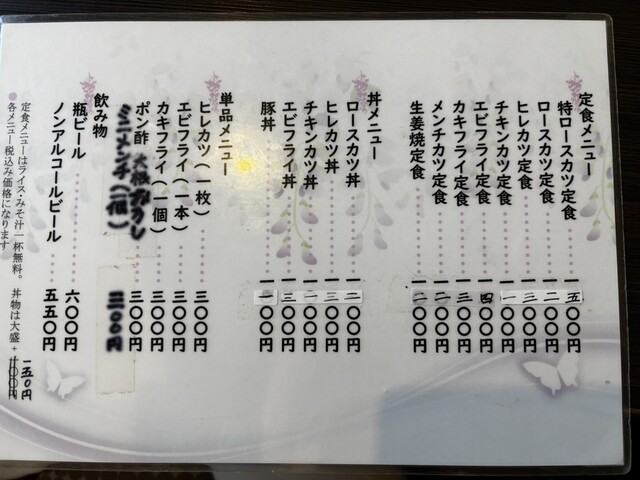 定食メニュー
特ロースカツ定食 一五〇〇円
ロースカツ定食 一二〇〇円
ヒレカツ定食 一三〇〇円
チキンカツ定食 一一〇〇円
エビフライ定食 一四〇〇円
カキフライ定食 一三〇〇円
メンチカツ定食 一二〇〇円
生姜焼定食 一二〇〇円
丼メニュー
ロースカツ丼 一二〇〇円
ヒレカツ丼 一三〇〇円
チキンカツ丼 一二〇〇円
エビフライ丼 一三〇〇円
豚丼 一一〇〇円
単品メニュー
ヒレカツ(一枚) 三〇〇円
エビフライ(一本) 三〇〇円
カキフライ(一個) 三〇〇円
ポン酢 大根おろし 三〇〇円
ミニメンチ(一個) 三〇〇円
飲み物
瓶ビール 六〇〇円
ノンアルコールビール 五五〇円
定食メニューはライス・みそ汁一杯無料。 丼物は大盛+一五〇円
各メニュー税込み価格になります